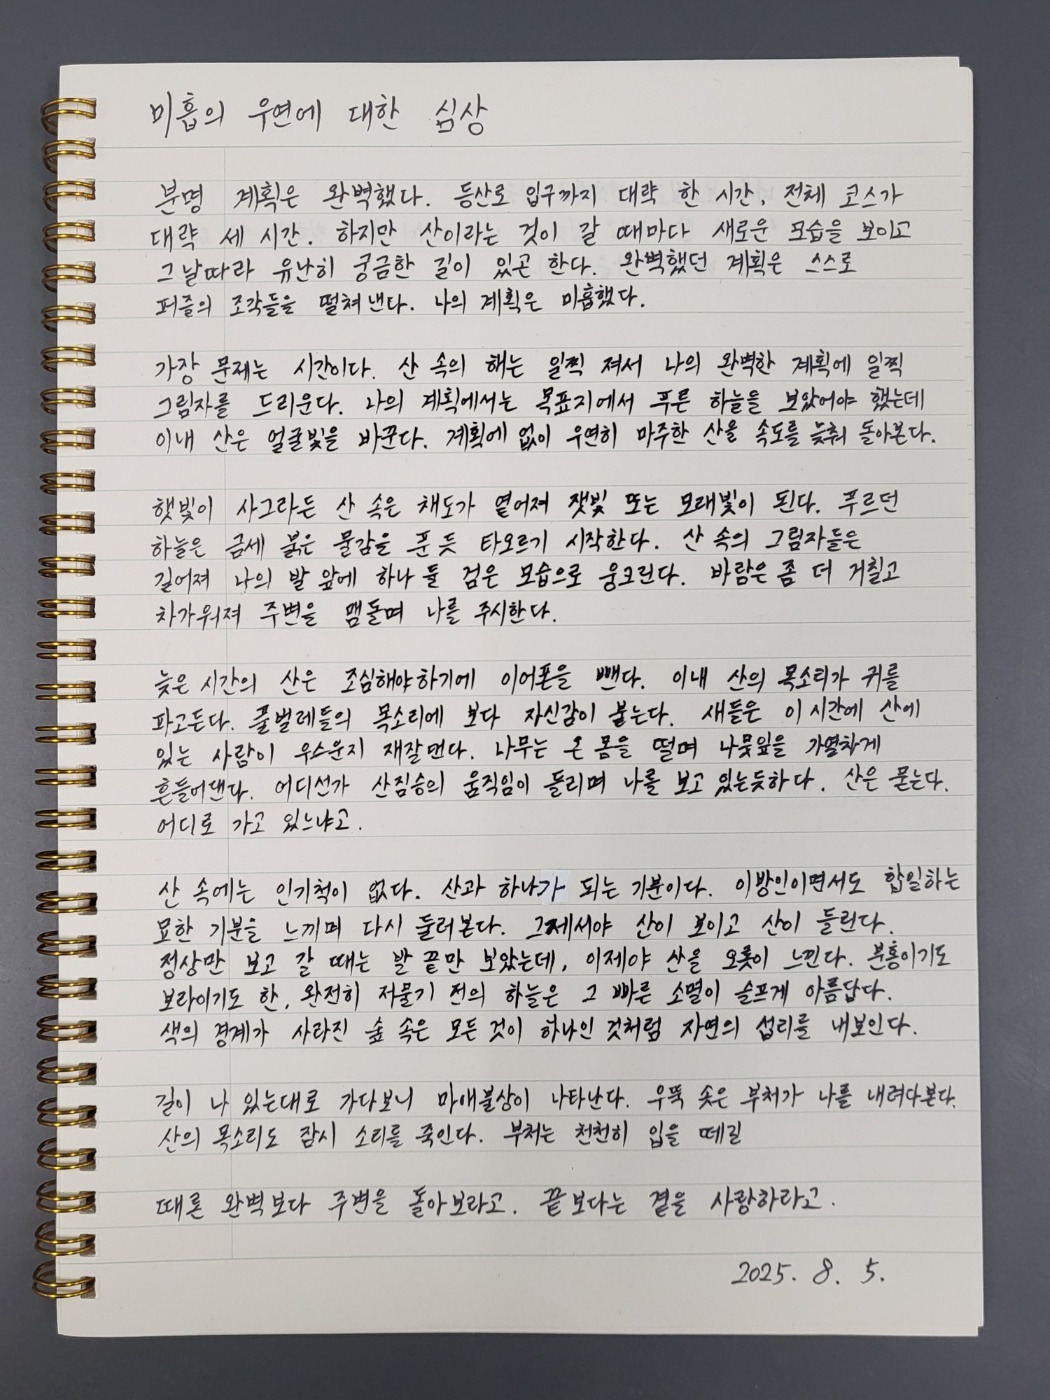 미흡의 우연에 대한 심상
분명 계획은 완벽했다. 등산로 입구까지 대략 한 시간, 전체 코스가
대략 세 시간. 하지만 산이라는 것이 갈 때마다 새로운 모습을 보이고
그날따라 유난히 궁금한 길이 있곤 한다. 완벽했던 계획은 스스로
퍼즐의 조각들을 떨쳐낸다. 나의 계획은 미흡했다.
가장 문제는 시간이다. 산 속의 해는 일찍 져서 나의 완벽한 계획에 일찍
그림자를 드리운다. 나의 계획에서는 목표지에서 푸른 하늘을 보았어야 했는데
이내 산은 얼굴빛을 바꾼다. 계획에 없이 우연히 마주한 산을 속도를 늦춰 돌아본다.
햇빛이 사그라든 산 속은 채도가 옅어져 잿빛 또는 모래빛이 된다. 푸르던
하늘은 금세 붉은 물감을 푼 듯 타오르기 시작한다. 산 속의 그림자들은
길어져 나의 발 앞에 하나 둘 검은 모습으로 웅크린다. 바람은 좀 더 거칠고
차가워져 주변을 맴돌며 나를 주시한다.
늦은 시간의 산은 조심해야하기에 이어폰을 뺀다. 이내 산의 목소리가 귀를
파고든다. 풀벌레들의 목소리에 보다 자신감이 붙는다. 새들은 이 시간에 산에
있는 사람이 우스운지 재잘댄다. 나무는 온 몸을 떨며 나뭇잎을 가열차게
흔들어댄다. 어디선가 산짐승의 움직임이 들리며 나를 보고 있는듯하다. 산은 묻는다.
어디로 가고 있느냐고.
산 속에는 인기척이 없다. 산과 하나가 되는 기분이다. 이방인이면서도 합일하는
묘한 기분을 느끼며 다시 둘러본다. 그제서야 산이 보이고 산이 들린다.
정상만 보고 갈 때는 발 끝만 보았는데, 이제야 산을 오롯이 느낀다. 분홍이기도
보라이기도 한, 완전히 저물기 전의 하늘은 그 빠른 소멸이 슬프게 아름답다.
색의 경계가 사라진 숲 속은 모든 것이 하나인 것처럼 자연의 섭리를 내보인다.
길이 나 있는대로 가다보니 마애불상이 나타난다. 우뚝 솟은 부처가 나를 내려다본다.
산의 목소리도 잠시 소리를 죽인다. 부처는 천천히 입을 떼길
때론 완벽보다 주변을 돌아보라고. 끝보다는 곁을 사랑하라고.
2025. 8. 5.